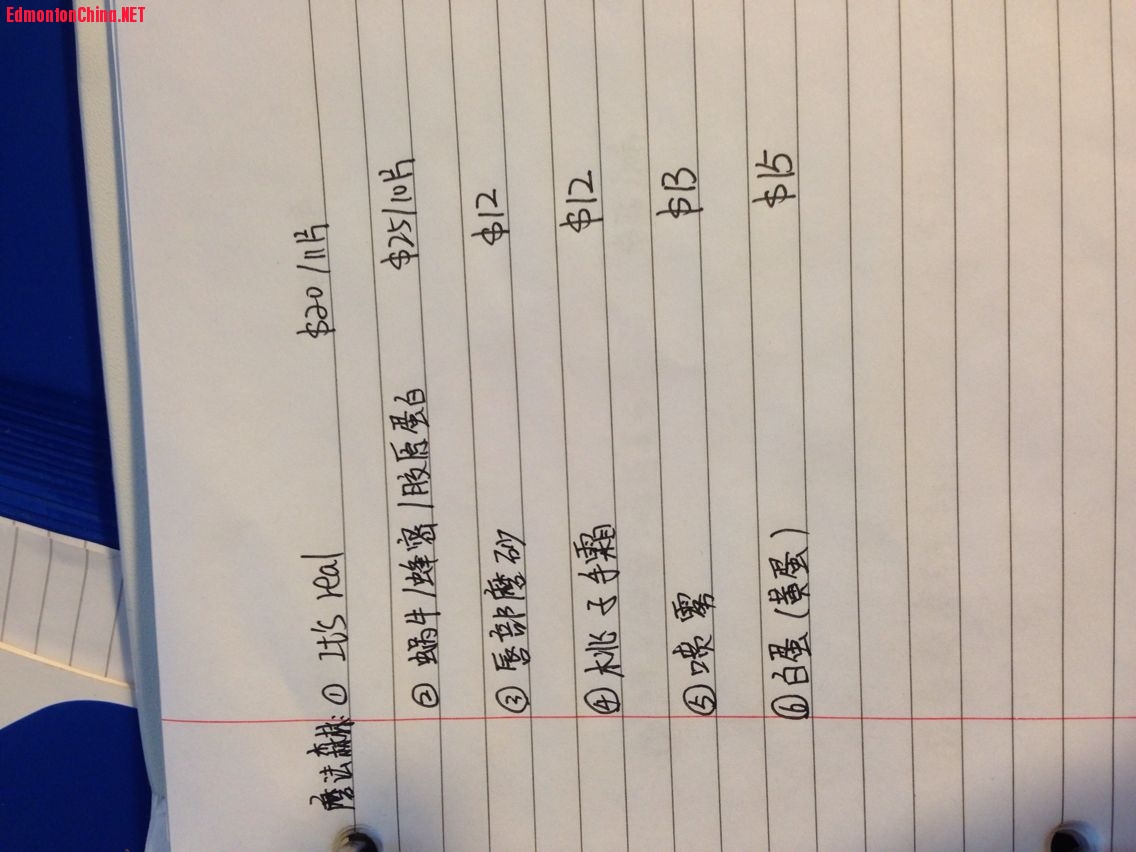 EdmontonChina.NET
魔法森林: ① It's real $20/11片
② 蜗牛/蜂蜜/胶原蛋白 $25/10片
③ 唇部磨砂 $12
④ 桃子手霜 $12
⑤ 喷雾 $13
⑥ 白蛋(黄蛋) $15